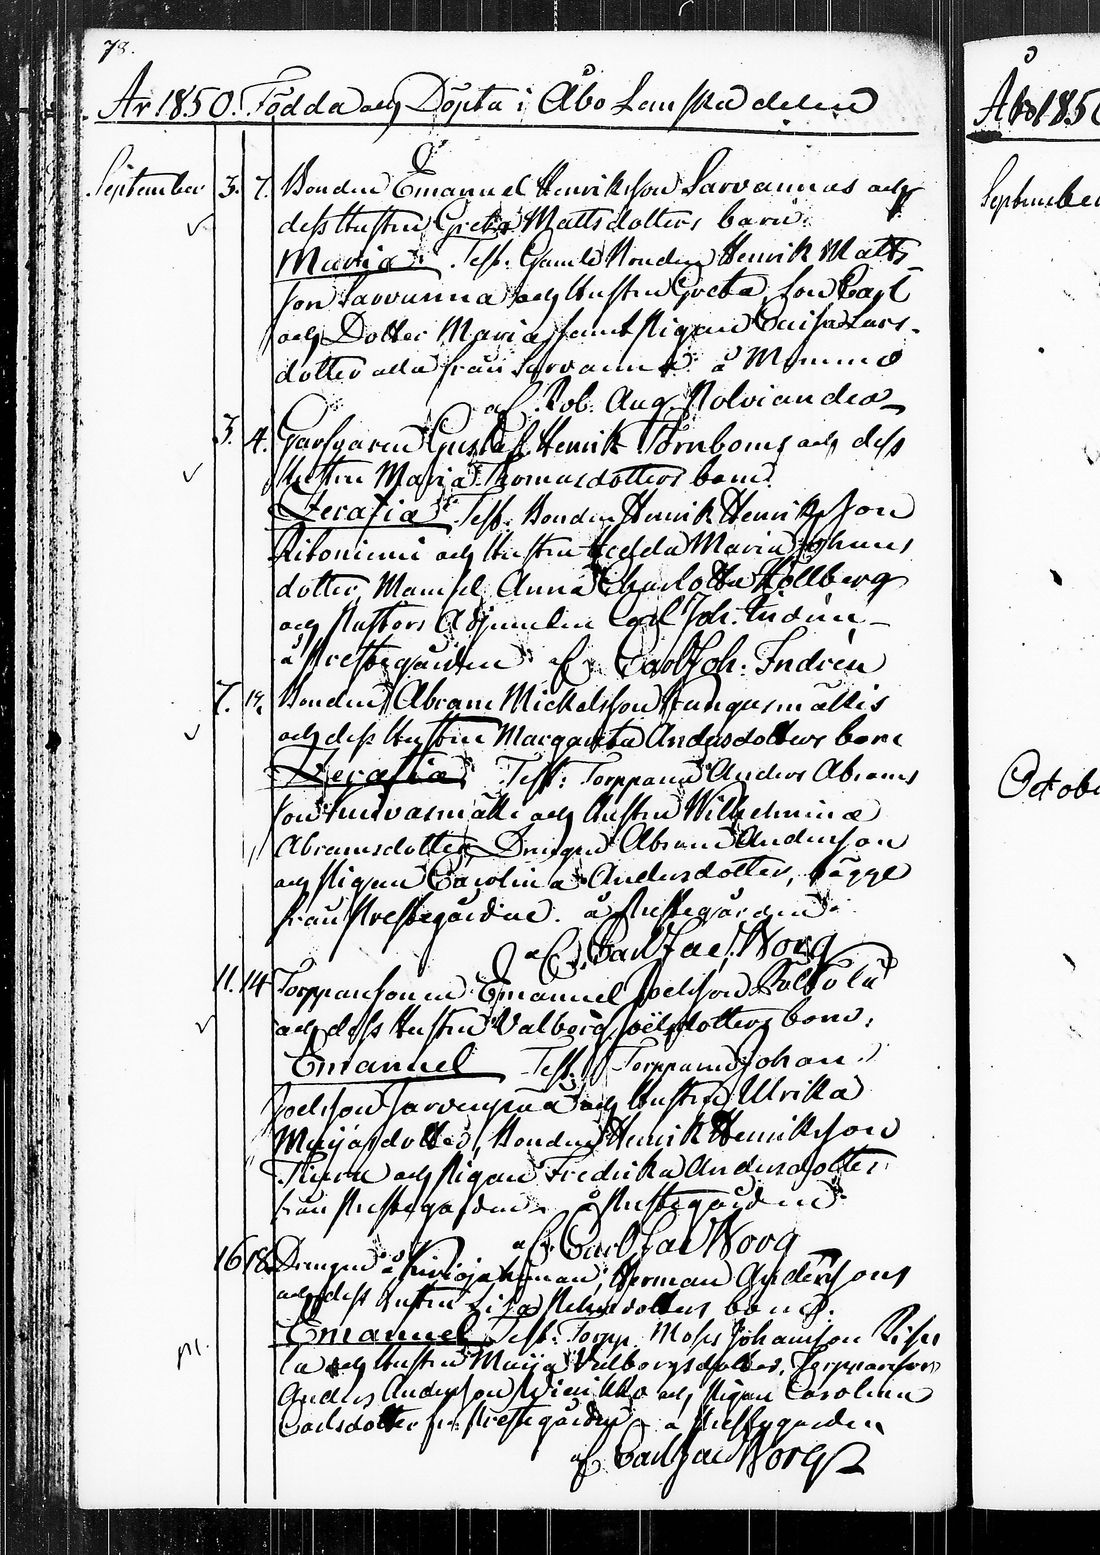 78.
År 1850. Födda och Döpta i Åbo Länska delen
September 3. 7. Bonden Emanuel Henriksson Sarvannas och
dess Hustru Greta Mattsdotters barn
Maria. Test. Gamle Bonden Henrik Matts
son Sarvanna och Hustru Greta, Son Carl
och Dotter Maria, samt Pigan Caisa Lars-
dotter alla från Sarvanna å Mommo
af Rob. Aug. Rolviander
3. 4. Garfvaren Gustaf Henrik Törnboms och dess
Hustru Maria Thomasdotters barn
Serafia Test. Bonden Henrik Henriksson
och Hustru Hedda Maria Johans
dotter, Mamsel Anna Charlotta Hollberg
och Pastors Adjuncten Carl Joh. Indrén
å Prestegården af Carl Joh. Indrén
7. Bonden Abram Mickelsson
och dess Hustru Margareta Andersdotters barn
Serafia Test. Torpparen Anders Abrams
son och Hustru Wilhelmina
Abramsdotter, Drengen Abram Andersson
och Pigan Carolina Andersdotter, bägge
från Prestegården. å Prestegården
af Carl Jac. Borg
11. 14 Torpparsonen Emanuel Joelsson
och dess Hustru Valborg Joelsdotters barn,
Emanuel Test. Torpparen Johan
Joelsson Jarvenpää och Hustru Ulrika
Maijasdotter, Bonden Henrik Henriksson
och Pigan Fredrika Andersdotter
från Prestegården å Prestegården
af Carl Jac Borg
16 18. Drengen å Herman Anderssons
och dess Hustru Lisa barn.
Emanuel Test. Torpp. Moses Johansson
la och Hustru Maija Valborgsdotter, Torpparson
Anders Andersson och Pigan Carolina
Carlsdotter fr. Prestegården å Prestegården
af Carl Jac Borg
År 1850
September
Octobe